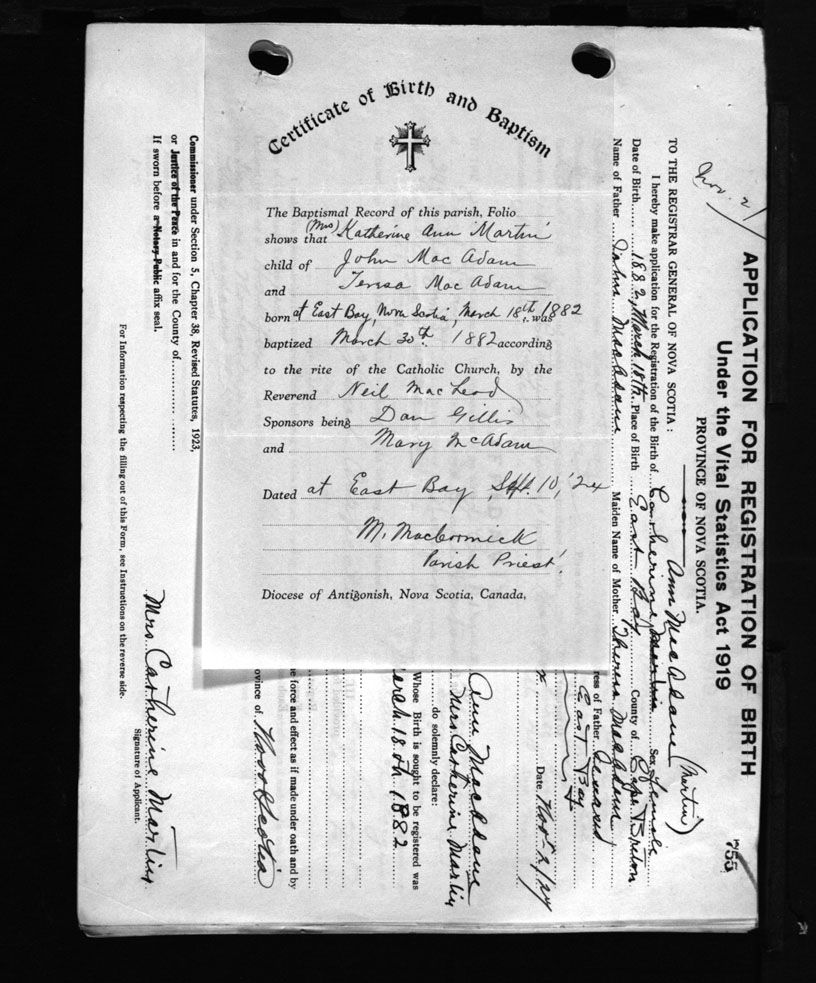 Certificate of Birth and Baptism
The Baptismal Record of this parish, Folio
shows that (Mrs) Katherine Ann Martin
child of John Mac Adam
and Teresa Mac Adam
born at East Bay, Nova Scotia, March 18th 1882 was
baptized March 30th 1882 according
to the rite of the Catholic Church, by the
Reverend Neil MacLeod
Sponsors being Dan Gillis
and Mary McAdam
Dated at East Bay, Sept. 10, '24
M. MacCormick
Parish Priest
Diocese of Antigonish, Nova Scotia, Canada,
755
APPLICATION FOR REGISTRATION OF BIRTH
Under the Vital Statistics Act 1919
PROVINCE OF NOVA SCOTIA.
Nov. 2
TO THE REGISTRAR GENERAL OF NOVA SCOTIA:
Ann MacAdam (Martin)
I hereby make application for the Registration of the Birth of Catherine Martin Sex Female
Date of Birth 1882 March 18th Place of Birth East Bay County of Cape Breton
Name of Father John MacAdam Maiden Name of Mother Theresa MacAdam
ress of Father
East Bay
Date Nov 2/24
Ann MacAdam
Mrs Catherine Martin
do solemnly declare:
Whose Birth is sought to be registered was
arch 18th 1882
e force and effect as if made under oath and by
ovince of Nova Scotia
Commissioner under Section 5, Chapter 38, Revised Statutes, 1923,
or Justice of the Peace in and for the County of
If sworn before a Notary Public affix seal.
Mrs. Catherine Martin
Signature of Applicant.
For Information respecting the filling out of this Form, see Instructions on the reverse side.